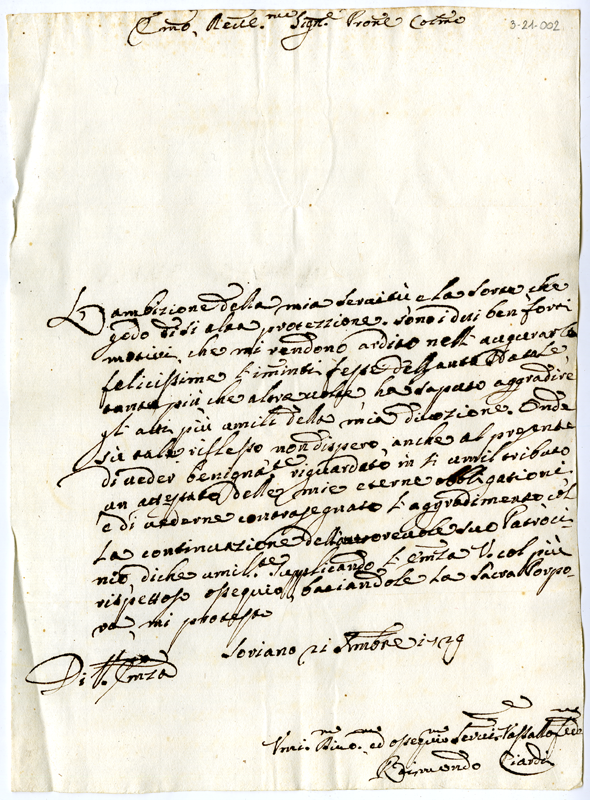 Emo. Reve.mo Sign.e Prone Colmo
3-21-002
L'ambizione della mia servitù e la sorte che
godo di si alta protezzione. sono i dui ben forti
motivi, che mi rendono ardito nell'augurarle
felicissime l'imminti feste del Santo Natale
tanto più che altre volte ha saputo aggradire
gl'atti più umili della mia divozione. Onde
sù tale riflesso non dispero, anche al presente
di veder benignate riguardato in sì umil tributo
un attestato delle mie eterne obbligationi.
e di vederne contrasegnato l'aggradimento col
la continuazione dell'autorevole suo Patroci
nio, di che umilte. supplicando l'Emza V. col più
rispettoso ossequio, baciandole la Sacra Porpo-
ra, mi protesto
Di V. Emza
Soriano 21 Xmbre 1729
Umi.mo Divo.mo ed ossequio.mo Servit.e Vassallo fede
Raimondo Ciardi